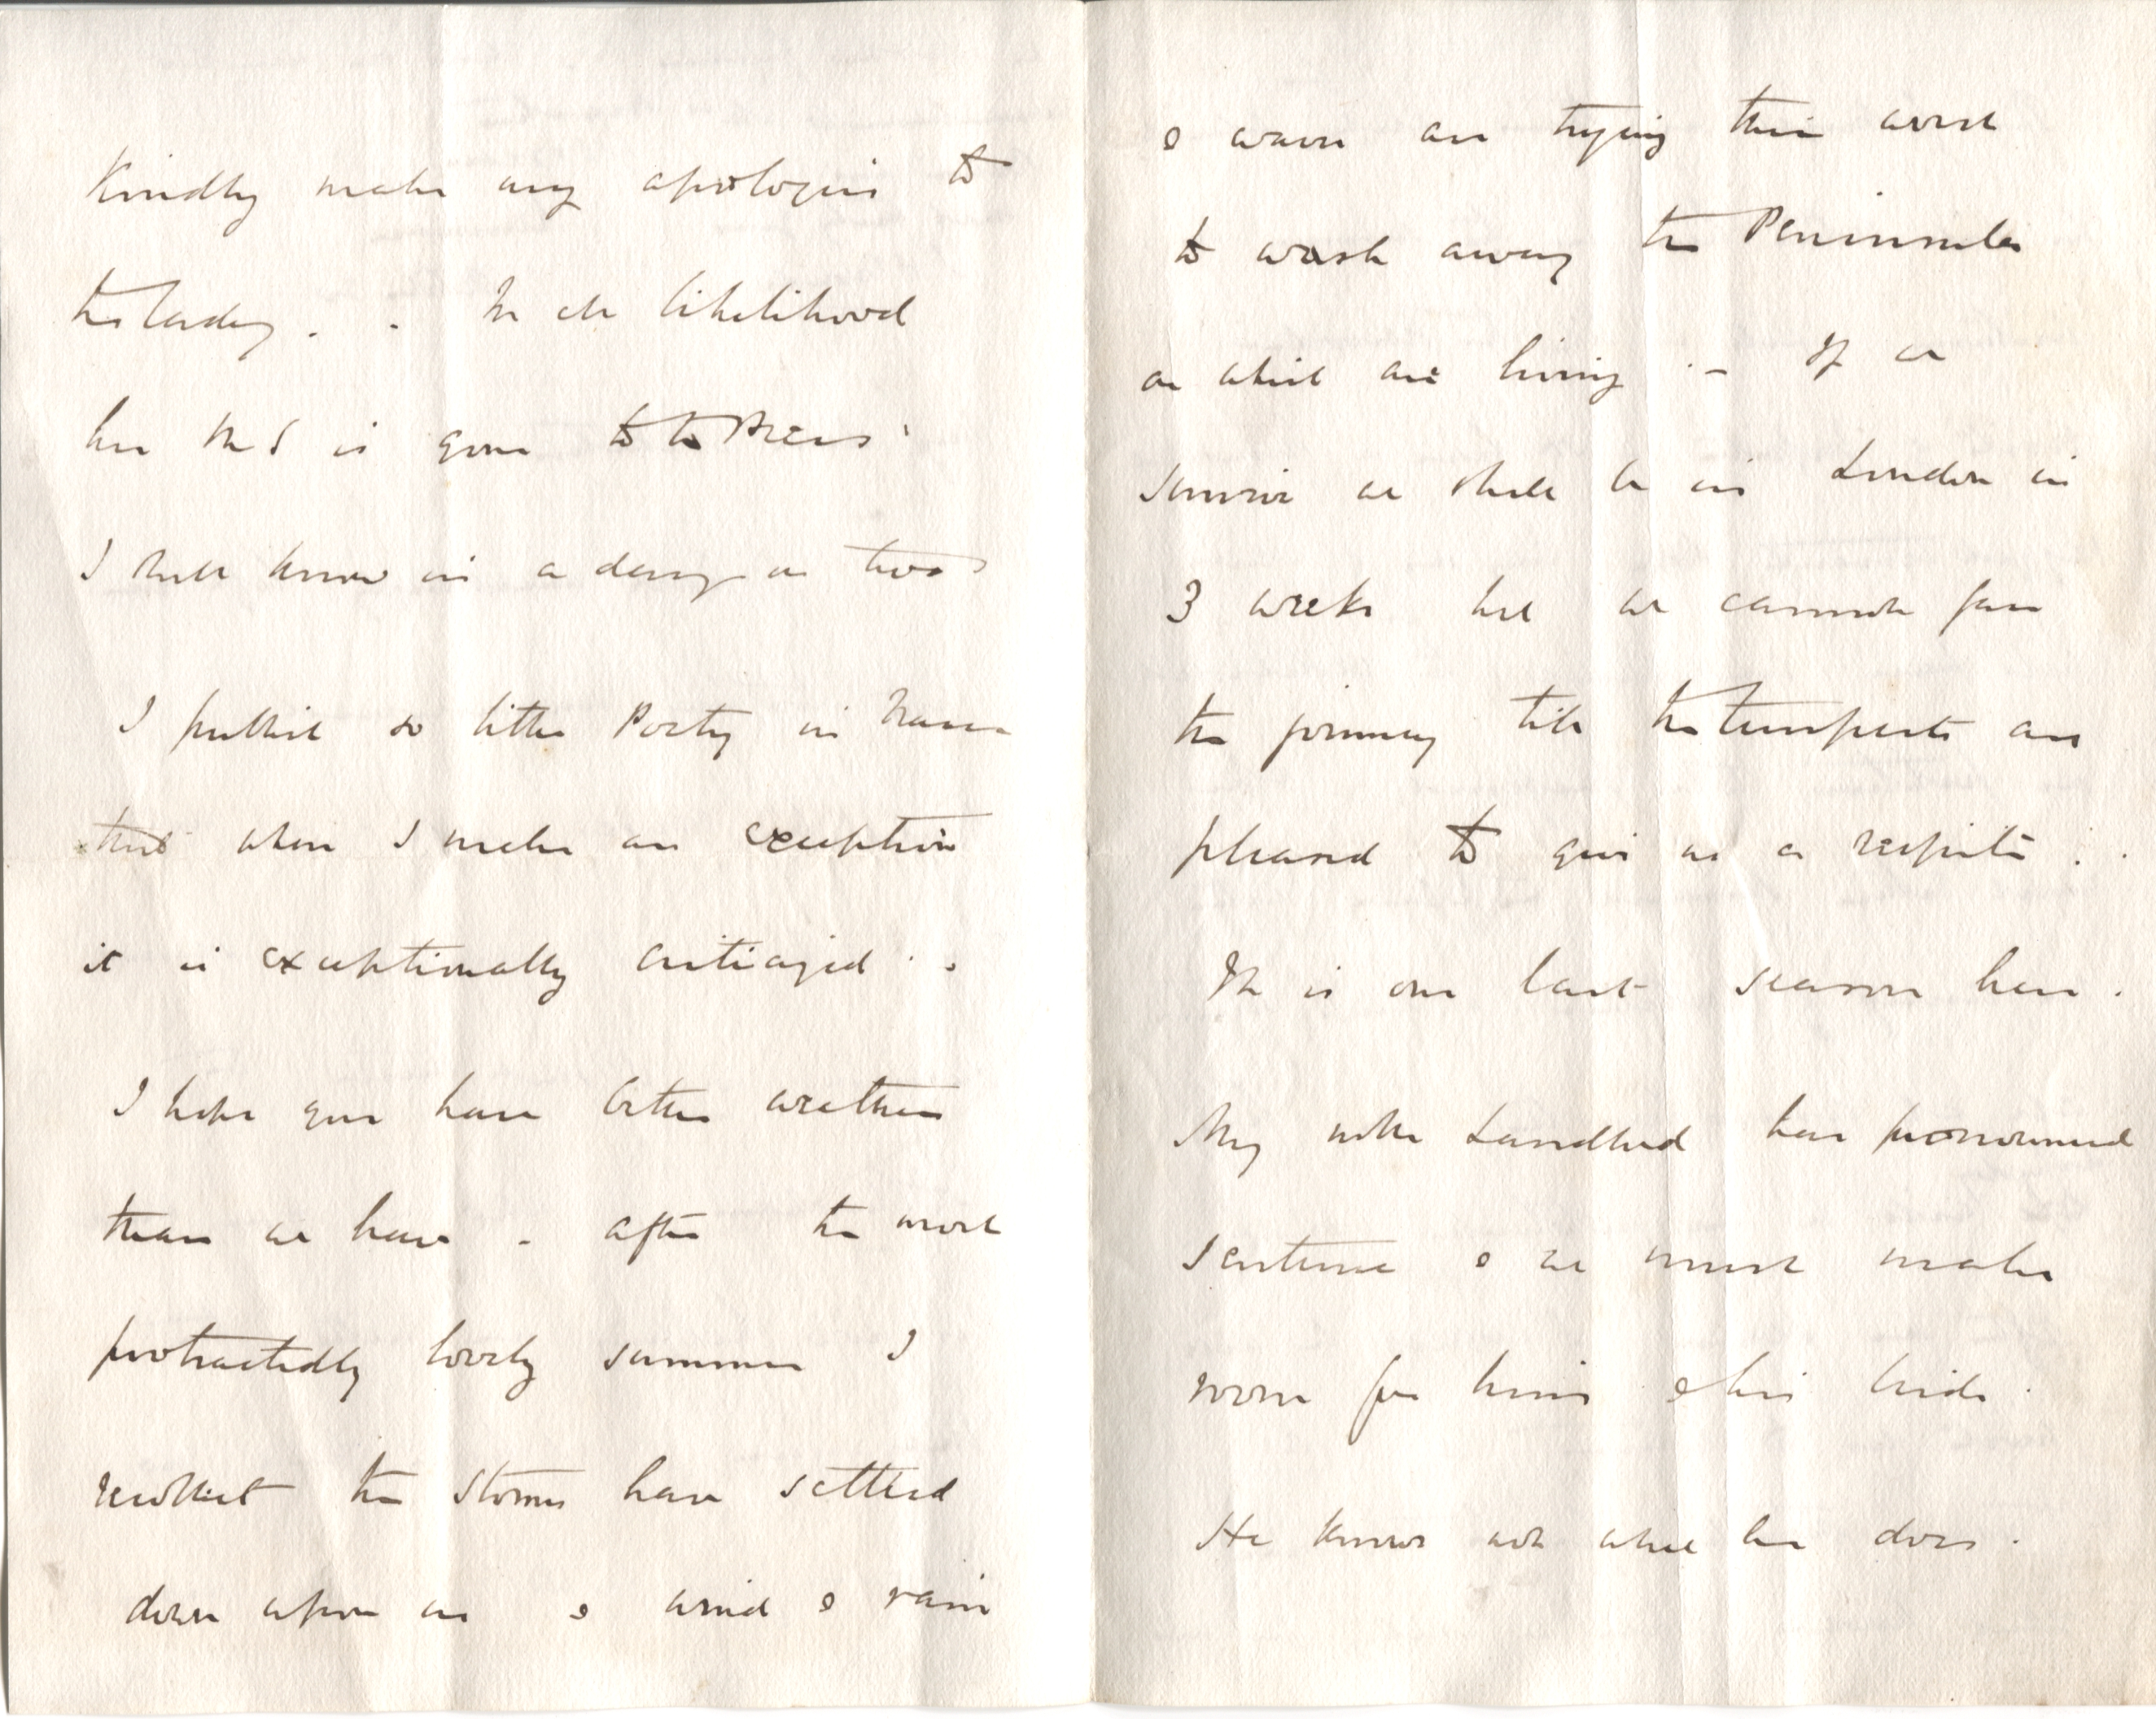 Kindly make my apologies to
the lady . . In all likelihood
her MS is gone to the Press.
I shall know in a day or two
I publish so little Poetry in
that when I make an exception
it is exceptionally criticized . .
I hope you have better weather
than we have . After the most
protractedly lovely summer I
recollect the storms have settled
down upon us & wind & rain
& waves are trying their worst
to wash away the Peninsula
on which are living . – If we
survive we shall be in London in
3 weeks but we cannot face
the journey till the tempests are
pleased to give us a respite . .
It is our last season here .
My noble Landlord has pronounced
sentence & we must make
room for him & his bride .
He knows not what he does .